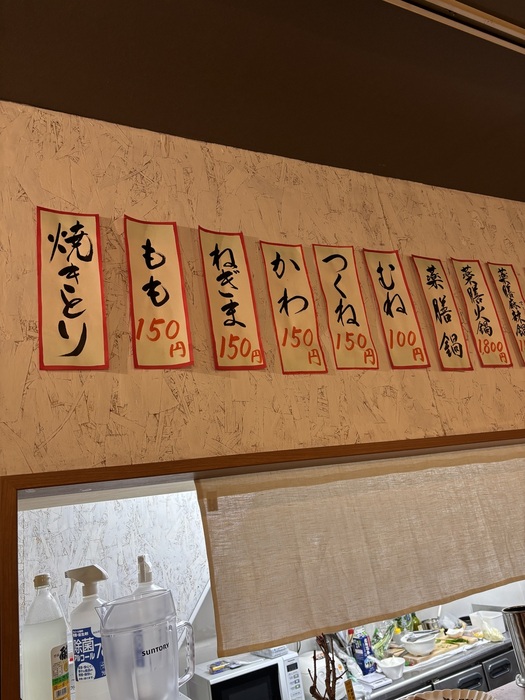 焼きとり
もも
150円
ねぎま
150円
かわ
150円
つくね
150円
むね
100円
薬膳鍋
薬膳火鍋
1,800円
薬膳
除菌
アルコール
SUNTORY